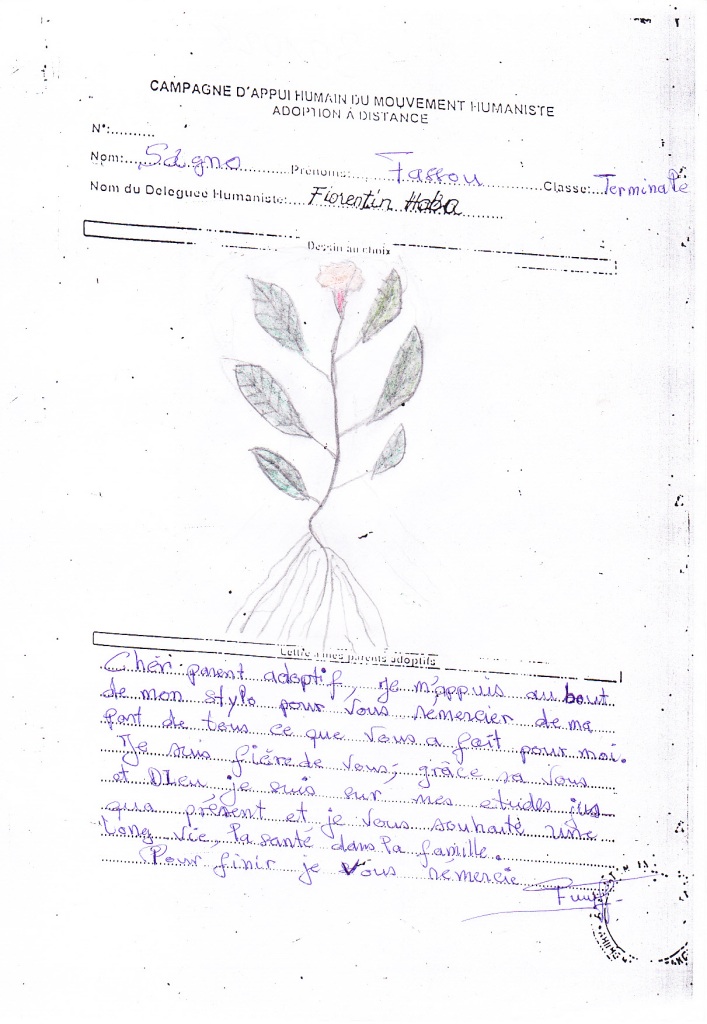 CAMPAGNE D'APPUI HUMAIN DU MOUVEMENT HUMANISTE
ADOPTION À DISTANCE
N°:..........
Nom: Sagno Prénoms: Fassou Classe: Terminale
Nom du Déléguée Humaniste: Florentin Haba
Dessin au choix
Lettre à mes parents adoptifs
Chéri parent adoptif, je m'appuis au bout
de mon stylo pour vous rémercier de ma
part de tous ce que vous a fait pour moi.
Je suis fière de vous; grâce sa vous
et Dieu je suis sur mes etudes jus
qua présent et je vous souhaite une
long vie, la santé dans la famille.
Pour finir je vous rémercie